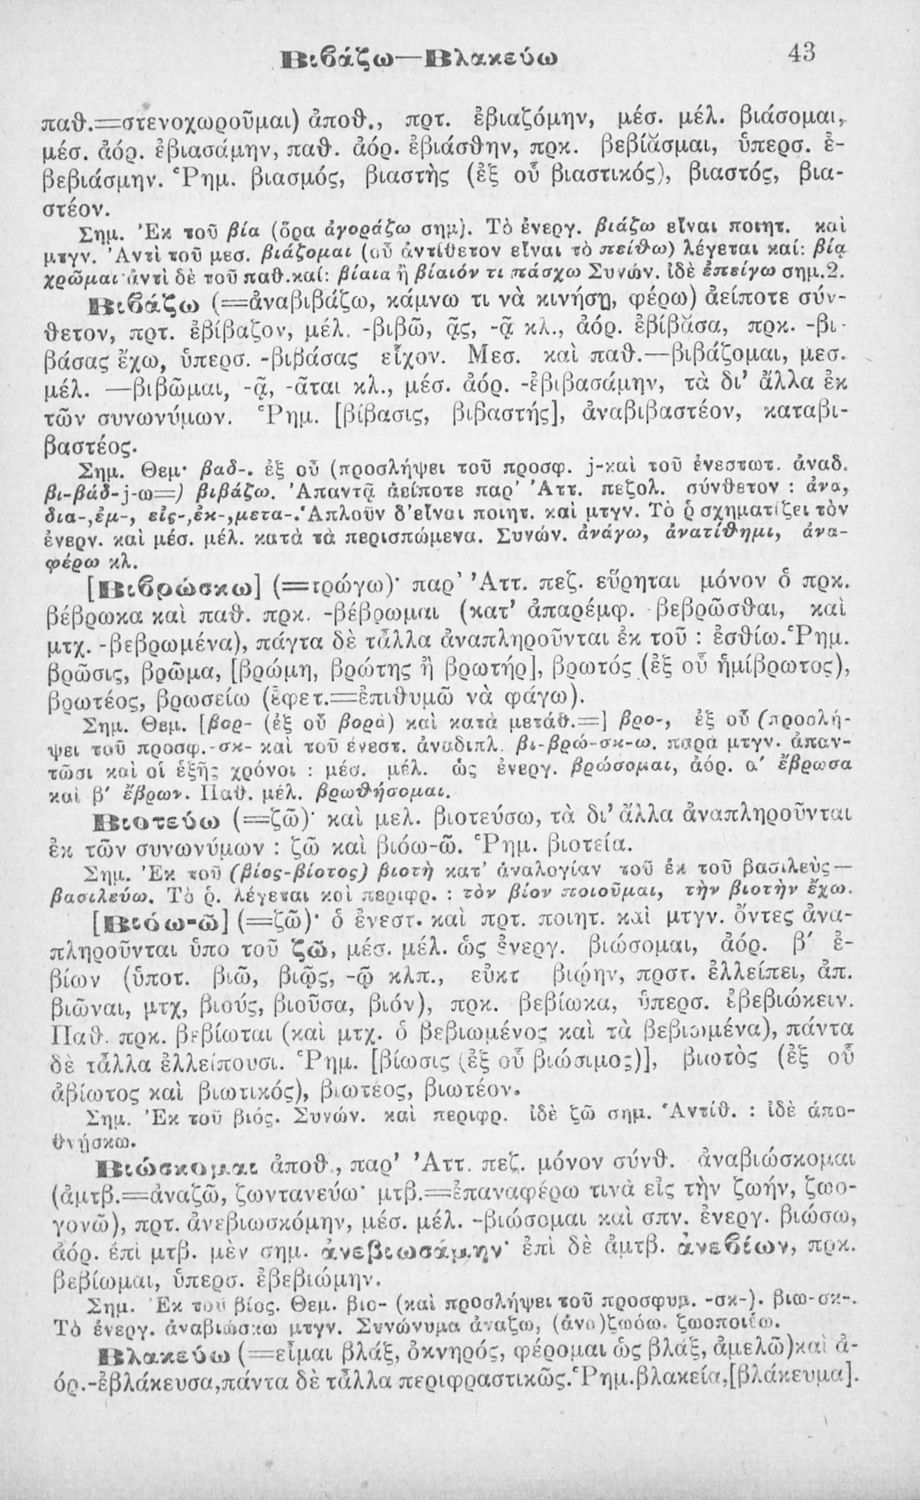 Βιβάζω—Βλακεύω 43
παθ.=στενοχωροῦμαι) ἀποθ., πρτ. ἐβιαζόμην, μέσ. μέλ. βιάσομαι,
μέσ. ἀόρ. ἐβιασάμην, παθ. ἀόρ. ἐβιάσθην, πρκ. βεβίασμαι, ὑπερσ. ἐ-
βεβιάσμην. Ῥημ. βιασμός, βιαστὴς (ἐξ οὗ βιαστικός), βιαστός, βια-
στέον.
Σημ. Ἐκ τοῦ βία (ὅρα ἀγοράζω σημ). Τὸ ἐνεργ. βιάζω εἶναι ποιητ. καὶ
μτγν. Ἀντὶ τοῦ μεσ. βιάζομαι (οὗ ἀντίθετον εἶναι τὸ πείθω) λέγεται καί: βίᾳ
χρῶμαι ἀντὶ δὲ τοῦ παθ. καί: βίαια ἢ βίαιόν τι πάσχω Συνών. ἰδὲ ἐπείγω σημ.2.
Βιβάζω (=ἀναβιβάζω, κάμνω τι νὰ κινήσῃ, φέρω) ἀείποτε σύν-
θετον, πρτ. ἐβίβαζον, μέλ. -βιβῶ, ᾷς, -ᾷ κλ., ἀόρ. ἐβίβασα, πρκ. -βι-
βάσας ἔχω, ὑπερσ. -βιβάσας εἶχον. Μεσ. καὶ παθ.—βιβάζομαι, μεσ.
μέλ. —βιβῶμαι, -ᾷ, -ᾶται κλ., μέσ. ἀόρ. -ἐβιβασάμην, τὰ δι' ἄλλα ἐκ
τῶν συνωνύμων. Ῥημ. [βίβασις, βιβαστής], ἀναβιβαστέον, καταβι-
βαστέος.
Σημ. Θεμ· βαδ-. ἐξ οὗ (προσλήψει τοῦ προσφ. j-καὶ τοῦ ἐνεστωτ. ἀναδ.
βι-βάδ-j-ω=) βιβάζω. Ἀπαντᾷ ἀείποτε παρ' Ἀττ. πεζολ. σύνθετον : ἀνα,
δια-,ἐμ-, εἰς-,ἐκ-,μετα-.Ἁπλοῦν δ'εἶναι ποιητ. καὶ μτγν. Τὸ ῥ σχηματίζει τὸν
ἐνεργ. καὶ μέσ. μέλ. κατὰ τὰ περισπώμενα. Συνών. ἀνάγω, ἀνατίθημι, ἀνα-
φέρω κλ.
[Βιβρώσκω] (=τρώγω)· παρ' Ἀττ. πεζ. εὕρηται μόνον ὁ πρκ.
βέβρωκα καὶ παθ. πρκ. -βέβρωμαι (κατ' ἀπαρέμφ. -βεβρῶσθαι, καὶ
μτχ. -βεβρωμένα), πάντα δὲ τἆλλα ἀναπληροῦνται ἐκ τοῦ : ἐσθίω. Ῥημ.
βρῶσις, βρῶμα, [βρώμη, βρώτης ἢ βρωτήρ], βρωτός (ἐξ οὗ ἡμίβρωτος),
βρωτέος, βρωσείω (ἐφετ.=ἐπιθυμῶ νὰ φάγω).
Σημ. Θεμ. [βορ- (ἐξ οὗ βορὰ) καὶ κατὰ μετάθ.=] βρο-, ἐξ οὗ (προσλή-
ψει τοῦ προσφ.-σκ- καὶ τοῦ ἐνεστ. ἀναδιπλ. βι-βρώ-σκ-ω. παρὰ μτγν. ἀπαν-
τῶσι καὶ οἱ ἑξῆς χρόνοι : μέσ. μέλ. ὡς ἐνεργ. βρώσομαι, ἀόρ. α' ἔβρωσα
καὶ β' ἔβρων. Παθ. μέλ. βρωθήσομαι.
Βιοτεύω (=ζῶ)· καὶ μελ. βιοτεύσω, τὰ δι' ἄλλα ἀναπληροῦνται
ἐκ τῶν συνωνύμων : ζῶ καὶ βιόω-ῶ. Ῥημ. βιοτεία.
Σημ. Ἐκ τοῦ (βίος-βίοτος) βιοτὴ κατ' ἀναλογίαν τοῦ ἐκ τοῦ βασιλεὺς—
βασιλεύω. Τὸ ῥ. λέγεται καὶ περιφρ. : τὸν βίον ποιοῦμαι, τὴν βιοτὴν ἔχω.
[Βιόω-ῶ] (=ζῶ)· ὁ ἐνεστ. καὶ πρτ. ποιητ. καὶ μτγν. ὄντες ἀνα-
πληροῦνται ὑπο τοῦ ζῶ, μέσ. μέλ. ὡς ἐνεργ. βιώσομαι, ἀόρ. β' ἐ-
βίων (ὑποτ. βιῶ, βιῷς, -ῷ κλπ., εὐκτ βιῴην, προστ. ἐλλείπει, ἀπ.
βιῶναι, μτχ, βιούς, βιοῦσα, βιόν), πρκ. βεβίωκα, ὑπερσ. ἐβεβιώκειν.
Παθ. πρκ. βεβίωται (καὶ μτχ. ὁ βεβιωμένος καὶ τὰ βεβιωμένα), πάντα
δὲ τἆλλα ἐλλείπουσι. Ῥημ. [βίωσις (ἐξ οὗ βιώσιμος)], βιωτὸς (ἐξ οὗ
ἀβίωτος καὶ βιωτικός), βιωτέος, βιωτέον.
Σημ. Ἐκ τοῦ βιός. Συνών. καὶ περιφρ. ἰδὲ ζῶ σημ. Ἀντίθ. : ἰδὲ ἀπο-
θνήσκω.
Βιώσκομαι ἀποθ., παρ' Ἀττ. πεζ. μόνον σύνθ. ἀναβιώσκομαι
(ἀμτβ.=ἀναζῶ, ζωντανεύω· μτβ.=ἐπαναφέρω τινὰ εἰς τὴν ζωήν, ζωο-
γονῶ), πρτ. ἀνεβιωσκόμην, μέσ. μέλ. -βιώσομαι καὶ σπν. ἐνεργ. βιώσω,
ἀόρ. ἐπὶ μτβ. μὲν σημ. ἀνεβιωσάμην· ἐπὶ δὲ ἀμτβ. ἀνεβίων, πρκ.
βεβίωμαι, ὑπερσ. ἐβεβιώμην.
Σημ. Ἐκ τοῦ βίος. Θεμ. βιο- (καὶ προσλήψει τοῦ προσφυμ. -σκ-). βιω-σκ-.
Τὸ ἐνεργ. ἀναβιώσκω μτγν. Συνώνυμα ἀναζω, (ἀνα)ζωόω. ζωοποιέω.
Βλακεύω (=εἶμαι βλάξ, ὀκνηρός, φέρομαι ὡς βλάξ, ἀμελῶ)καὶ ἀ-
όρ.-ἐβλάκευσα,πάντα δὲ τἆλλα περιφραστικῶς. Ῥημ.βλακεία,[βλάκευμα].